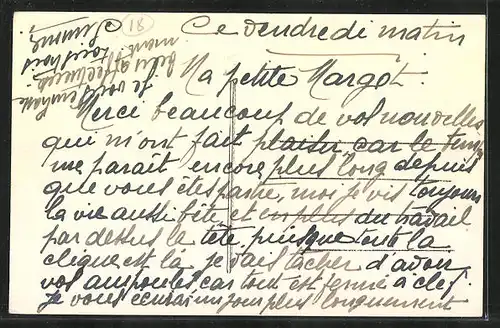 18
Ce vendredi matin
Ma petite Margot.
Merci beaucoup de vos nouvelles
qui m'ont fait plaisir car le temps
me parait encore plus long depuis
que vous êtes partie, moi je vis toujours
la vie aussi bête et en plus du travail
par dessus la tête, puisque toute la
clique est là je vais tâcher d'avoir
vos ampoules car tout est fermé à clef.
je vous écrirai un jour plus longuement
Je vous embrasse
bien affectueusement